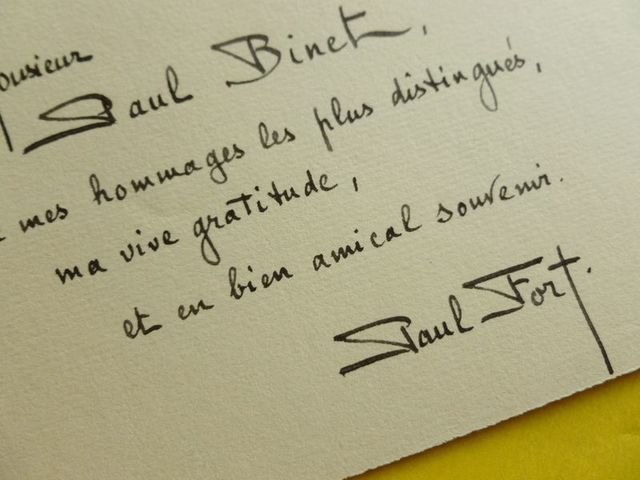 onsieur
Paul Binet,
mes hommages les plus distingués,
ma vive gratitude,
et en bien amical souvenir.
Paul Fort.